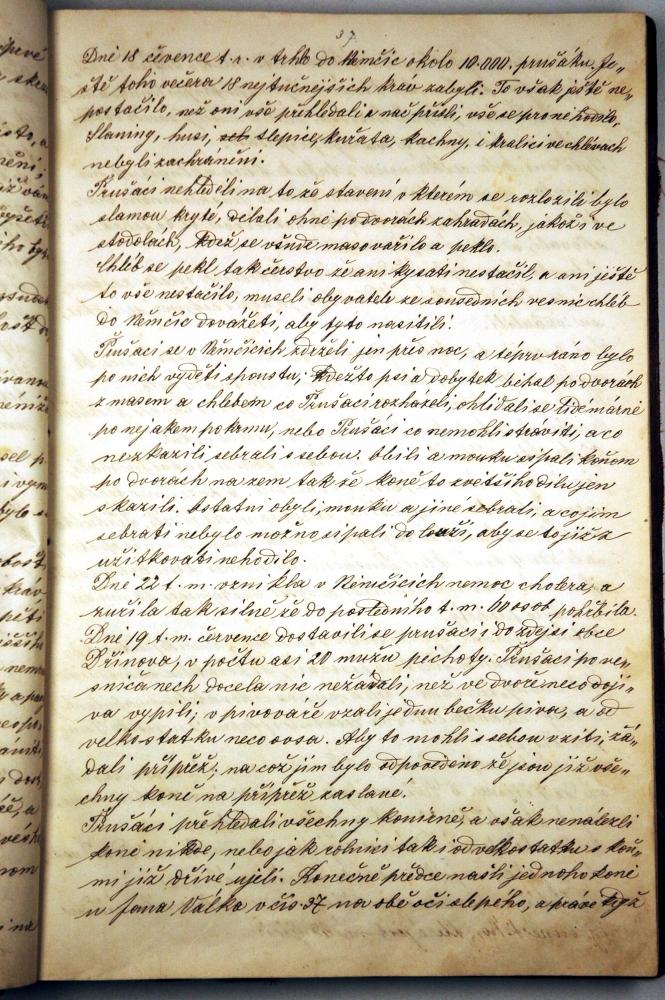 37
Dně 18 července t. r. v trhlo do Němčic okolo 10.000. prušáku. Je„
ště toho večera 18 nejtučnějších kráv zabyli. To však ještě ne„
postačilo, než oni vše přehledali a nač přišli, vše se pro ně hodilo,
Slaniny, husi, slepice, kuřata, kachny, i kralici ve chlévach
nebyli zachráněni.
Prušáci nehleděli na to, že stavení v kterém se rozložili bylo
slamou kryté, dělali ohně po dvorách zahradách, jakož i ve
stodolách, kdež se všude maso vařilo a peklo.
Chléb se pekl tak čerstvo že ani kysati nestačil, a ani ještě
to vše nestačilo, museli obyvatele ze sousedních vesnic chléb
do Němčic dovážeti, aby tyto nasitili.
Prušaci se v Němčicích zdrželi jen přes noc, a téprv ráno bylo
po nich vyděti spoustu; kdežto psi a dobytek běhal po dvorach
z masem a chlebem co Prušaci rozházeli, ohlidali se lidé márně
po nejakem pokrmu, nebo Prušáci co nemohli stráviti, a co
nezkazili, sebrali s sebou. Obili a mouku sipali koňom
po dvorách na zem tak že koně to zvětšího dílu jen
skazili. Ostatni obyli, mouku a jiné sebrali, a co jim
sebrati nebylo možno sipali do louži, aby se to již z
užitkovati nehodilo.
Dně 22 t. m. vznikla v Němčicich nemoc cholera, a
zuřila tak silně že do posledního t. m. 60 osob pohřbila.
Dně 19 t. m. července dostavili se prušaci i do zdejší obce
Dřinova, v počtu asi 20 mužu pěchoty. Prušaci po ve„
sničanech docela nic nežádali, než ve dvoře neco doji„
va vypili; v pivovaře vzali jednu bečku piva, a od
velkostatku neco ovsa. Aby to mohli s sebou vziti, žá„
dali přípřež; na což jim bylo odpovedeno že jsou již vše„
chny koně na přípřež zaslané.
Prušáci přehledali všechny konírně, a však nenalezli
koně nikde, nebo jak rolnici tak i od velkostatku s koň„
mi již dříve ujeli. Konečně předce našli jednoho koně
u Jana Válka v čís. 37 na obě oči slepého, a práve když